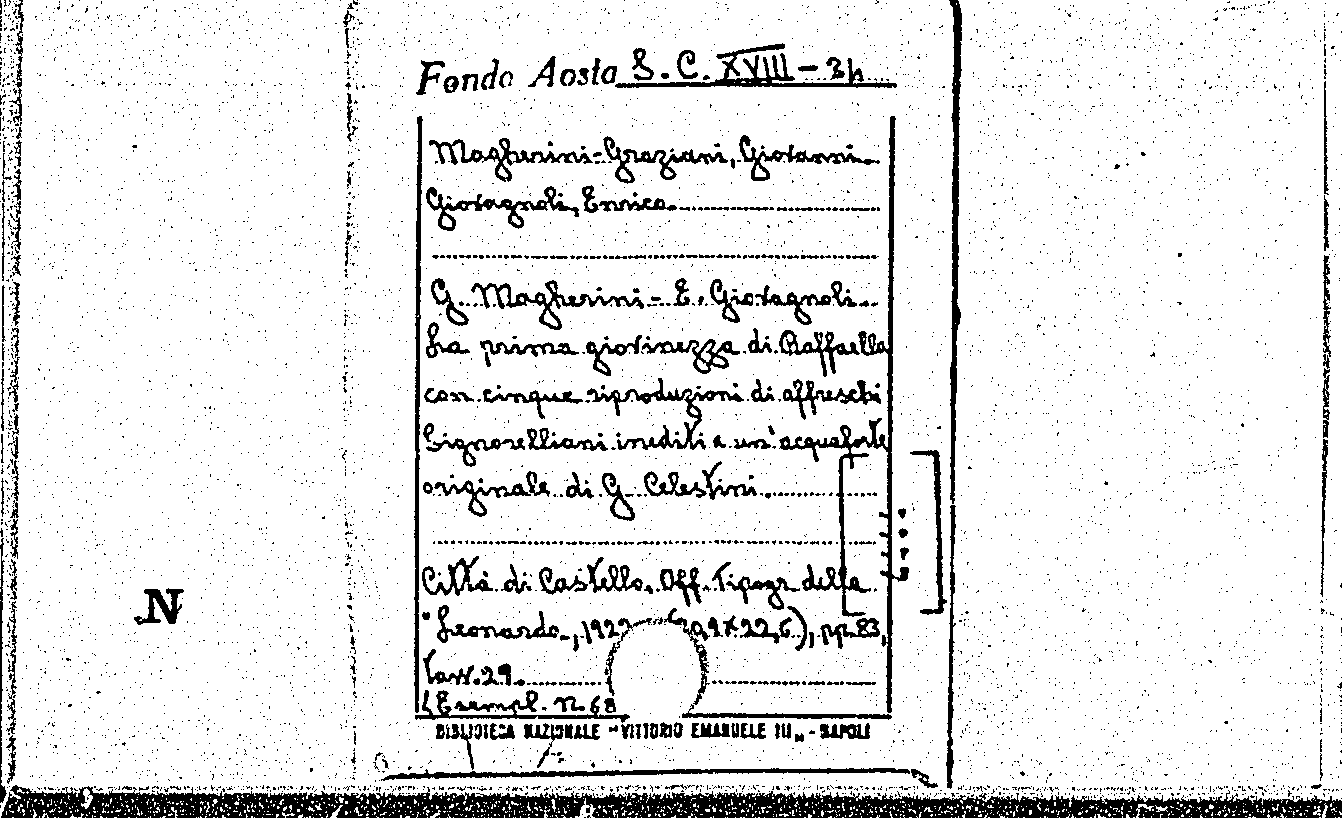 Fondo Aosta S. C. XVIII - 34
Magherini-Graziani, Giovanni
Giovagnoli, Enrico
G. Magherini - E. Giovagnoli
La prima giovinezza di Raffaello
con cinque riproduzioni di affreschi
Signorelliani inediti e un'acquaforte
originale di G. Celestini
Città di Castello, Off. Tipogr. della
"Leonardo", 1922 22,6), pp. 83,
tavv. 29.
(Esempl. n. 68
BIBLIOTECA NAZIONALE "VITTORIO EMANUELE III" - NAPOLI
N